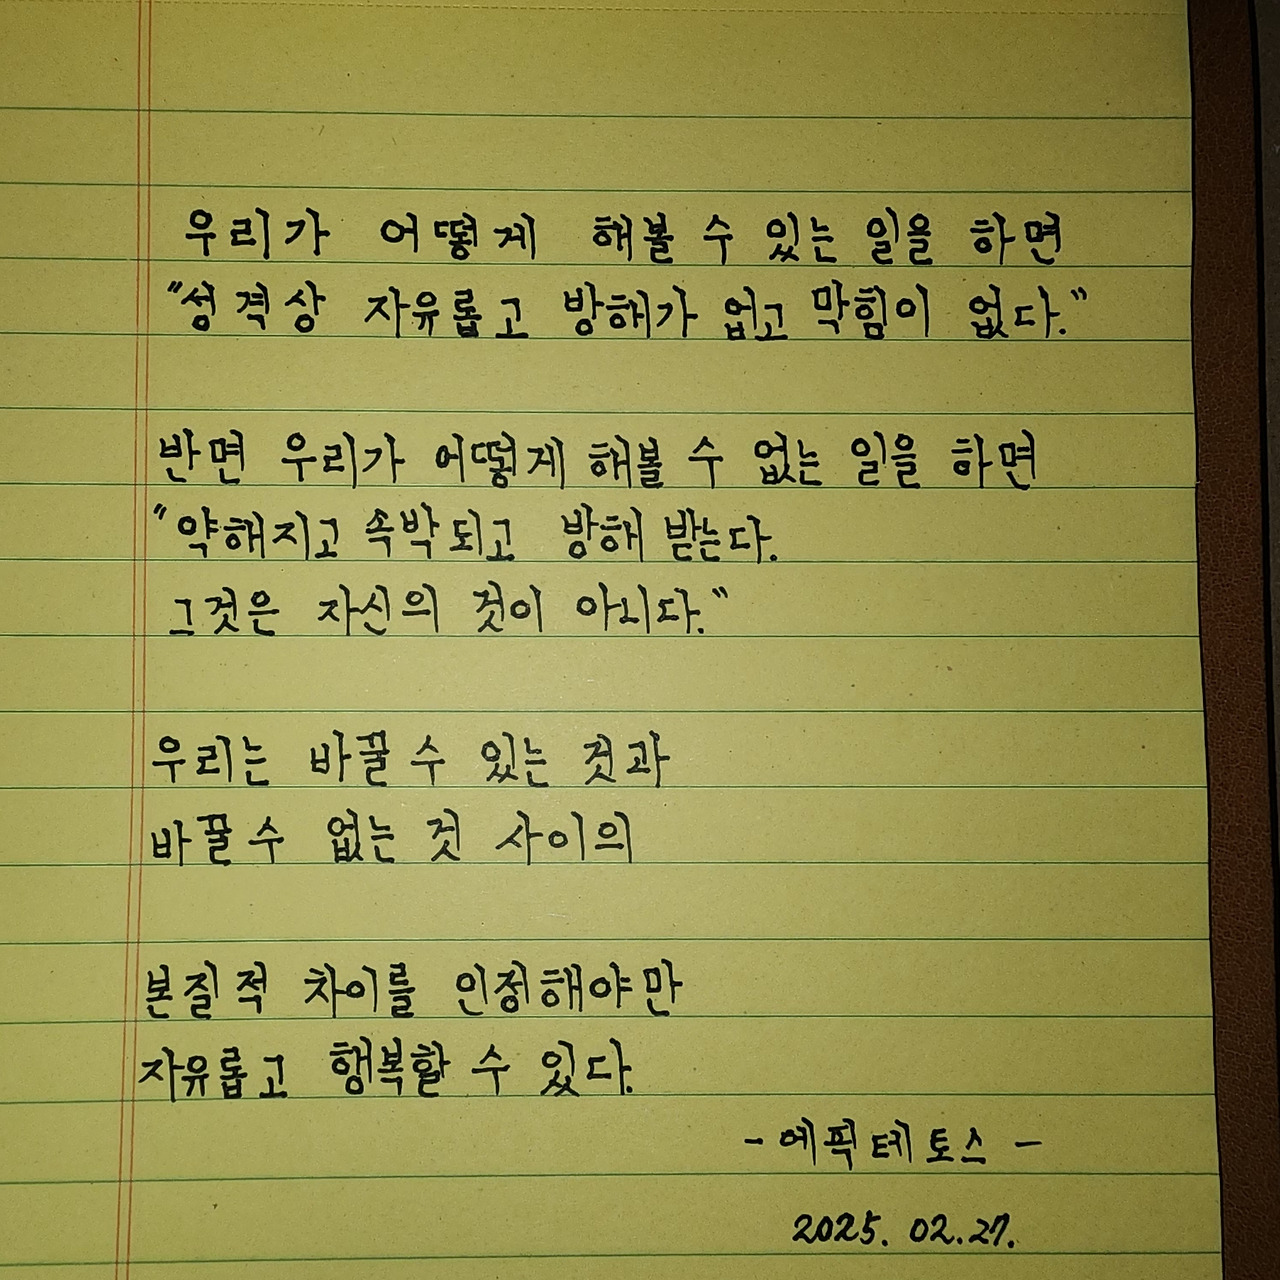 우리가 어떻게 해볼 수 있는 일을 하면
"성격상 자유롭고 방해가 없고 막힘이 없다."
반면 우리가 어떻게 해볼 수 없는 일을 하면
"약해지고 속박되고 방해 받는다.
그것은 자신의 것이 아니다."
우리는 바꿀 수 있는 것과
바꿀 수 없는 것 사이의
본질적 차이를 인정해야만
자유롭고 행복할 수 있다.
- 에픽테토스 -
2025. 02.27.